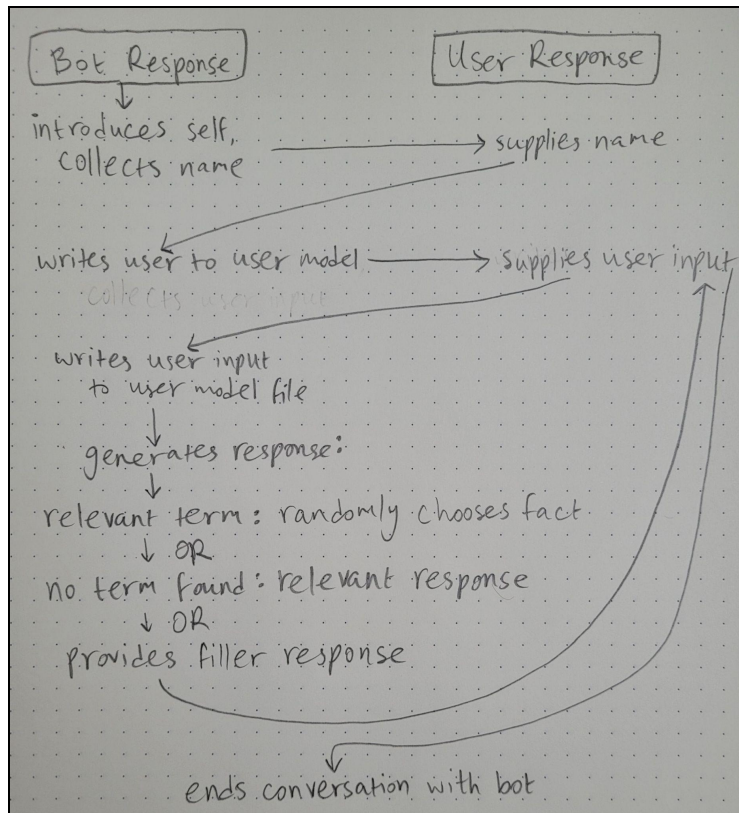 Bot Response
User Response
introduces self,
collects name
supplies name
writes user to user model
supplies user input
collects user input
writes user input
to user model file
generates response:
relevant term: randomly chooses fact
OR
no term found: relevant response
OR
provides filler response
ends conversation with bot